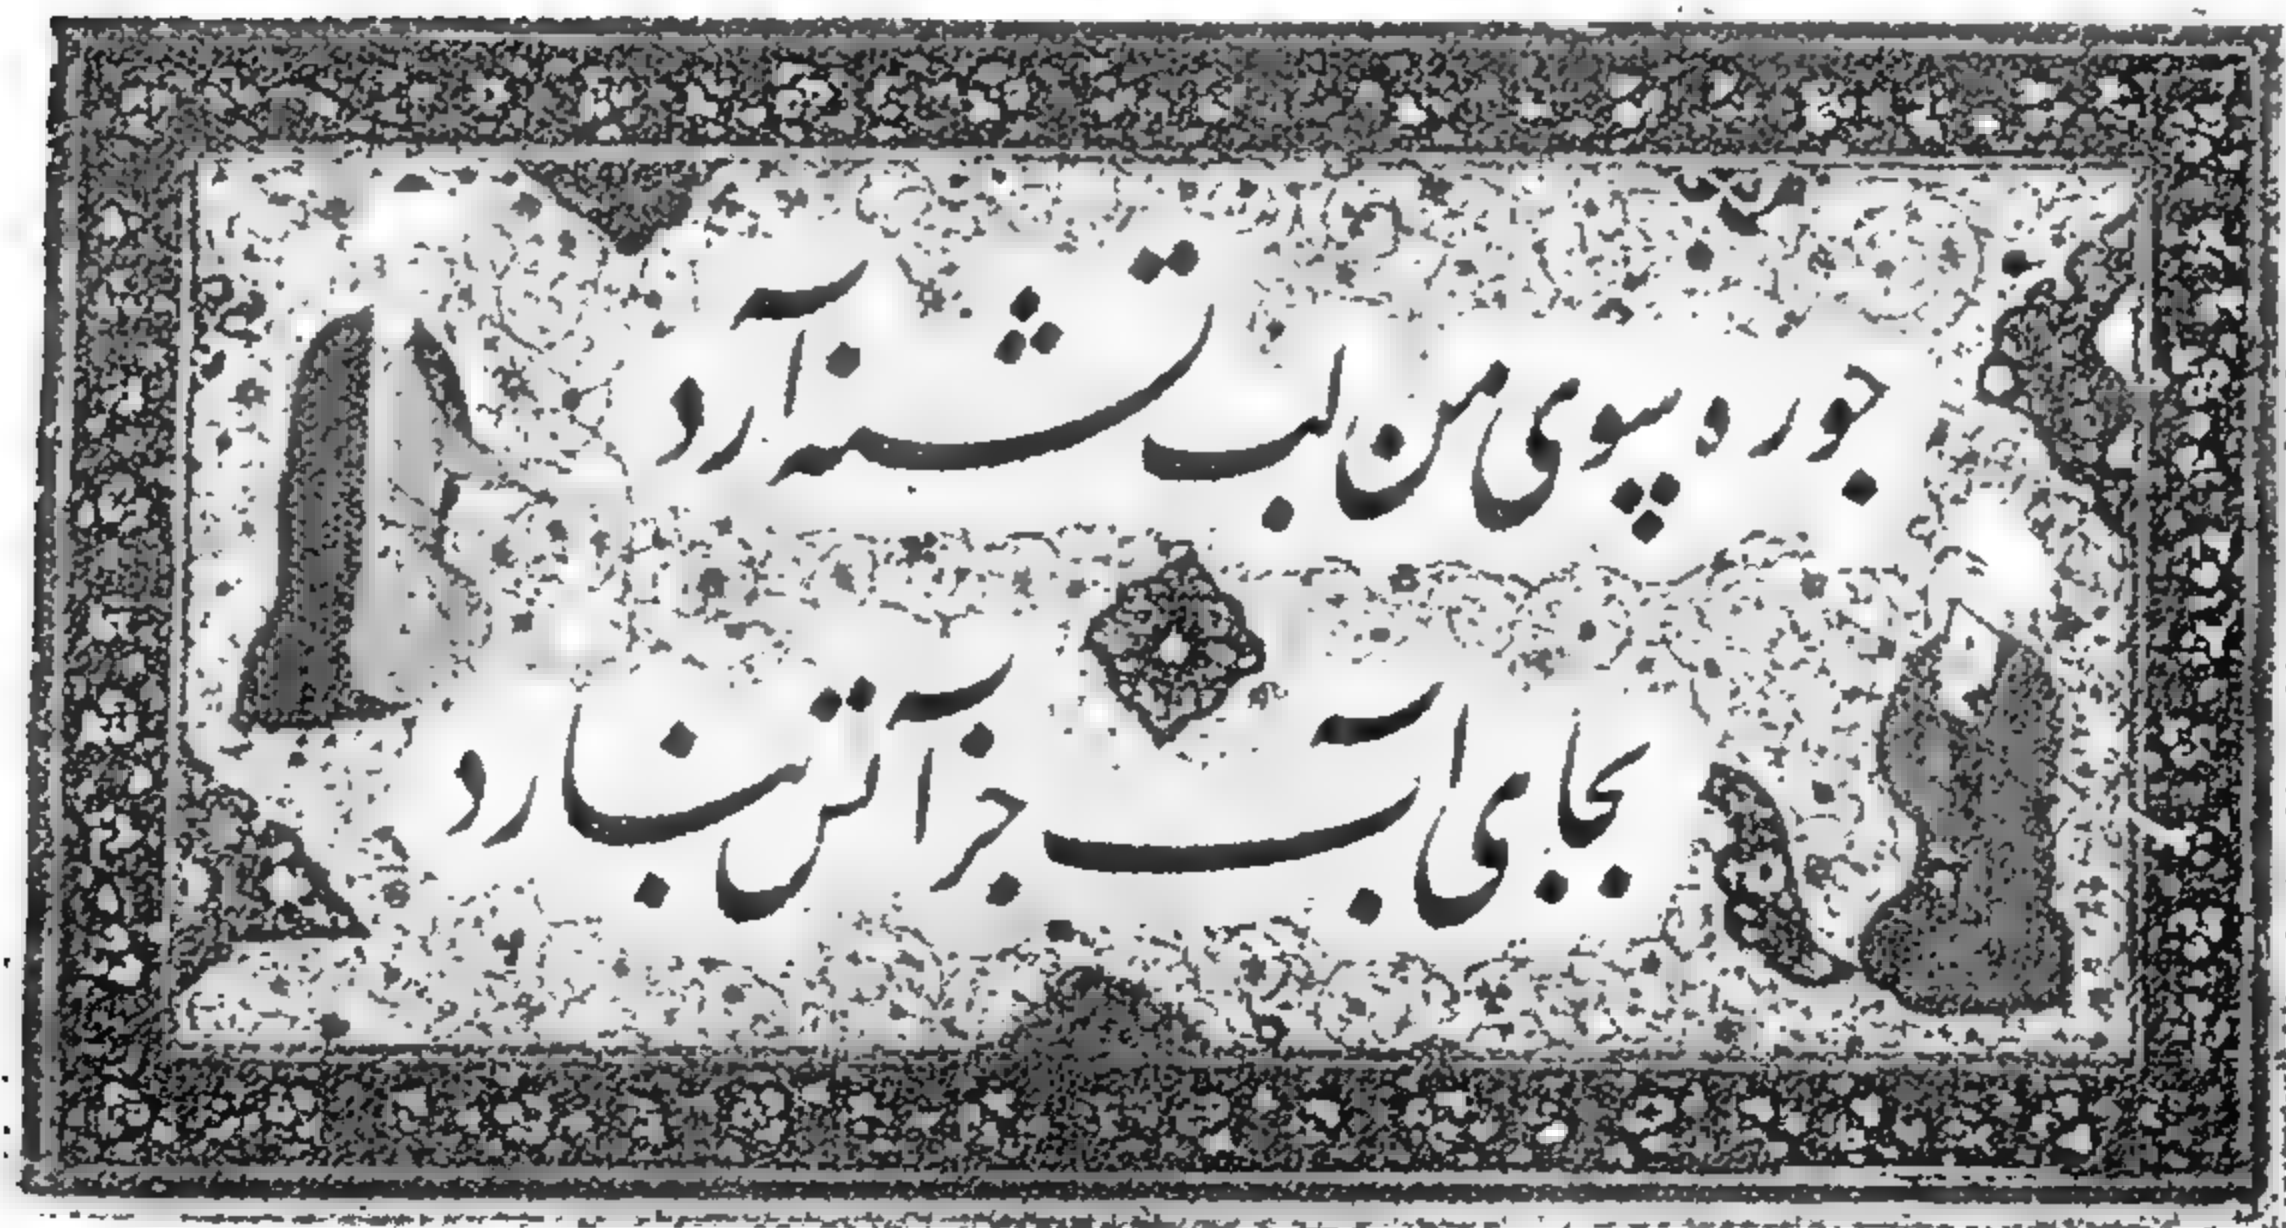 جو ره پسوی من لب تشنه آرد
بجای آب جز آتش نبارد